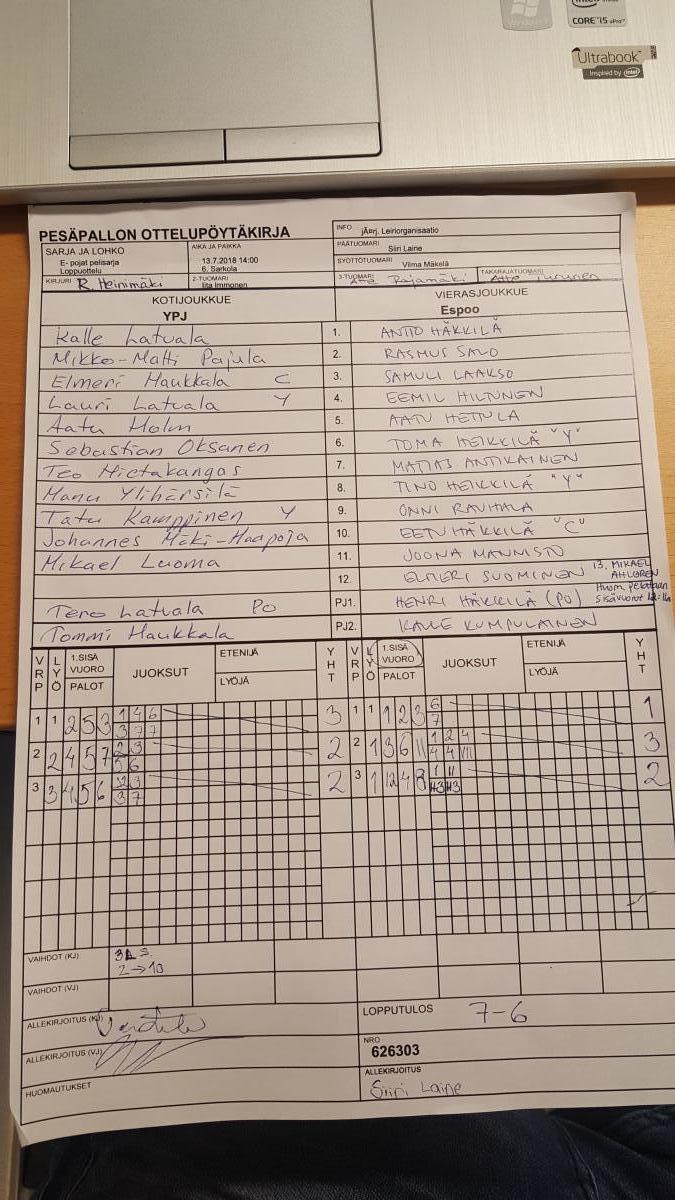 CORE i5 vPro
Ultrabook
Inspired by intel
PESÄPALLON OTTELUPÖYTÄKIRJA
INFO jÄprj. Leiriorganisaatio
SARJA JA LOHKO
E- pojat pelisarja
Loppuottelu
AIKA JA PAIKKA
13.7.2018 14:00
6. Sarkola
PÄÄTUOMARI Siiri Laine
SYÖTTÖTUOMARI Vilma Mäkelä
KIRJURI R. Heinimäki
2-TUOMARI Iita Immonen
3-TUOMARI Rajamäki
TAKARAJATUOMARI Turunen
KOTIJOUKKUE
YPJ
VIERASJOUKKUE
Espoo
Kalle Latvala 1. ANTTO HÄKKILÄ
Mikko-Matti Pajula 2. RASMUS SALO
Elmeri Haukkala C 3. SAMULI LAAKSO
Lauri Latvala Y 4. EEMIL HILTUNEN
Aatu Holm 5. AATU HETTULA
Sebastian Oksanen 6. TOMA HEIKKILÄ "Y"
Teo Hietakangas 7. MATIAS ANTIKAINEN
Manu Ylihärsilä 8. TINO HEIKKILÄ "Y"
Tatu Kamppinen Y 9. ONNI RAUHALA
Johannes Mäki-Haapoja 10. EETU HÄKKILÄ "C"
Mikael Luoma 11. JOONA MANNISTO
12. ELMERI SUOMINEN
13. MIKAEL
AHLGREN
Huom. pelataan
sisävuorot
Tero Latvala PO PJ1. HENRI HÄKKILÄ (PO)
Tommi Haukkala PJ2. KALLE KUMPULAINEN
VRP LYÖ 1.SISÄ VUORO PALOT JUOKSUT ETENIJÄ LYÖJÄ YHT
VRP LYÖ 1.SISÄ VUORO PALOT JUOKSUT ETENIJÄ LYÖJÄ YHT
1 1 2 5 3 1 4 6 3 1 1 1 2 3 6 1
3 7 7 7
2 2 4 5 7 2 3 2 2 1 3 6 11 1 2 4 3
5 6 4 4
3 3 4 5 6 3 2 3 1 12 4 8 1 11 2
3 7 #3 #3
VAIHDOT (KJ)
2→10
VAIHDOT (VJ)
ALLEKIRJOITUS (KJ)
LOPPUTULOS 7-6
ALLEKIRJOITUS (VJ)
NRO
626303
HUOMAUTUKSET
ALLEKIRJOITUS
Siiri Laine